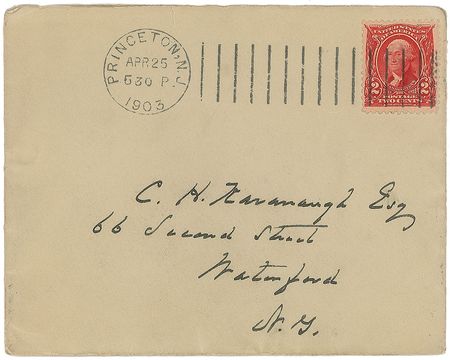 PRINCETON, N.J.
APR 25
530 P.
1903
UNITED STATES
OF AMERICA
2 2
POSTAGE
TWO CENTS
C. H. Kavanaugh Esq
66 Second Street
Waterford
N. Y.